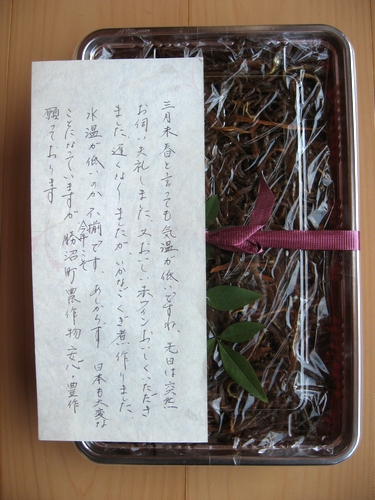 三月末春と言っても気温が低いですね、先日は突然
お伺い失礼しました、又おいしい赤ワインおいしくいただき
ました、遅くなりましたが いかなごくぎ煮作りました、
水温が低いのか不揃です、あしからず 日本も大変な
今年こそ
ことになっていますが 勝沼町農作物 安心・豊作
願っております